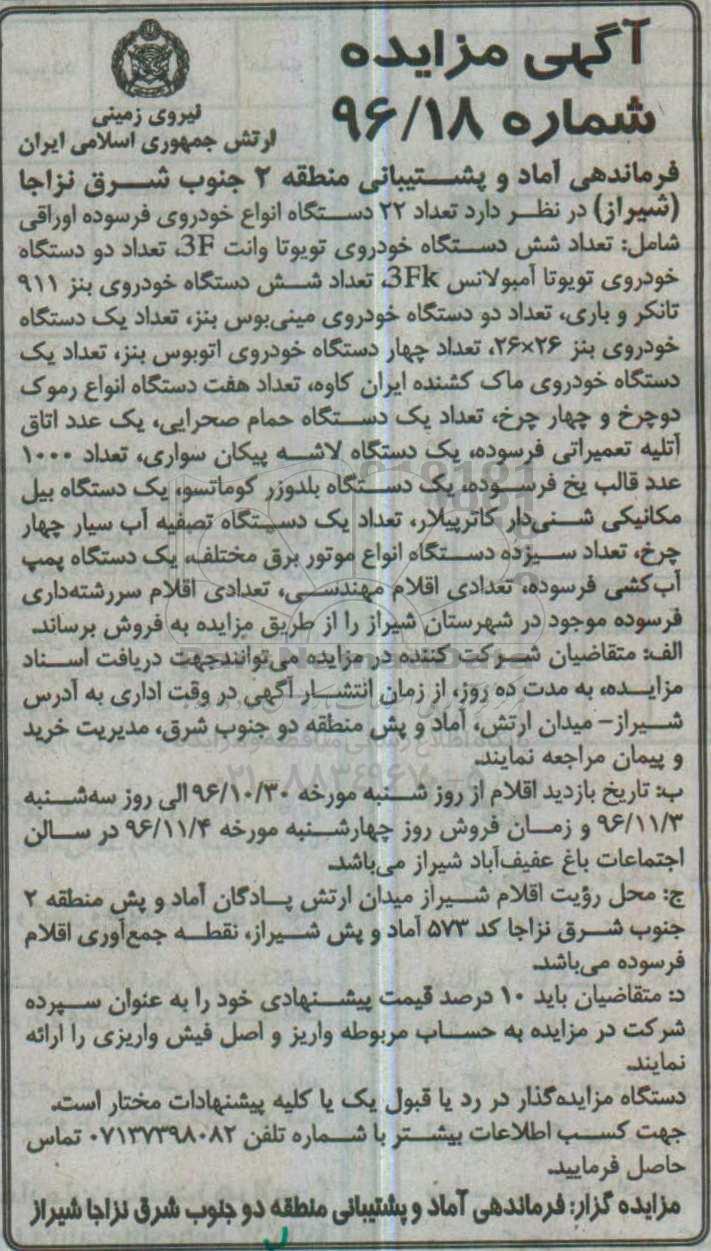 آگهی مزایده
شماره ۹۶/۱۸
نیروی زمینی
ارتش جمهوری اسلامی ایران
فرماندهی آماد و پشتیبانی منطقه ۲ جنوب شرق نزاجا
(شیراز) در نظر دارد تعداد ۲۲ دستگاه انواع خودروی فرسوده اوراقی
شامل: تعداد شش دستگاه خودروی تویوتا وانت 3F، تعداد دو دستگاه
خودروی تویوتا آمبولانس 3Fk، تعداد شش دستگاه خودروی بنز ۹۱۱
تانکر و باری، تعداد دو دستگاه خودروی مینی‌بوس بنز، تعداد یک دستگاه
خودروی بنز ۲۶×۲۶، تعداد چهار دستگاه خودروی اتوبوس بنز، تعداد یک
دستگاه خودروی ماک کشنده ایران کاوه، تعداد هفت دستگاه انواع رموک
دوچرخ و چهار چرخ، تعداد یک دستگاه حمام صحرایی، یک عدد اتاق
آتلیه تعمیراتی فرسوده، یک دستگاه لاشه پیکان سواری، تعداد ۱۰۰۰
عدد قالب یخ فرسوده، یک دستگاه بلدوزر کوماتسو، یک دستگاه بیل
مکانیکی شنی‌دار کاترپیلار، تعداد یک دستگاه تصفیه آب سیار چهار
چرخ، تعداد سیزده دستگاه انواع موتور برق مختلف، یک دستگاه پمپ
آب‌کشی فرسوده، تعدادی اقلام مهندسی، تعدادی اقلام سررشته‌داری
فرسوده موجود در شهرستان شیراز را از طریق مزایده به فروش برساند.
الف: متقاضیان شرکت کننده در مزایده می‌توانندجهت دریافت اسناد
مزایده، به مدت ده روز، از زمان انتشار آگهی در وقت اداری به آدرس
شیراز- میدان ارتش، آماد و پش منطقه دو جنوب شرق، مدیریت خرید
و پیمان مراجعه نمایند.
ب: تاریخ بازدید اقلام از روز شنبه مورخه ۹۶/۱۰/۳۰ الی روز سه‌شنبه
۹۶/۱۱/۳ و زمان فروش روز چهارشنبه مورخه ۹۶/۱۱/۴ در سالن
اجتماعات باغ عفیف‌آباد شیراز می‌باشد.
ج: محل رؤیت اقلام شیراز میدان ارتش پادگان آماد و پش منطقه ۲
جنوب شرق نزاجا کد ۵۷۳ آماد و پش شیراز، نقطه جمع‌آوری اقلام
فرسوده می‌باشد.
د: متقاضیان باید ۱۰ درصد قیمت پیشنهادی خود را به عنوان سپرده
شرکت در مزایده به حساب مربوطه واریز و اصل فیش واریزی را ارائه
نمایند.
دستگاه مزایده‌گذار در رد یا قبول یک یا کلیه پیشنهادات مختار است.
جهت کسب اطلاعات بیشتر با شماره تلفن ۰۷۱۳۷۳۹۸۰۸۲ تماس
حاصل فرمایید.
مزایده گزار: فرماندهی آماد و پشتیبانی منطقه دو جنوب شرق نزاجا شیراز